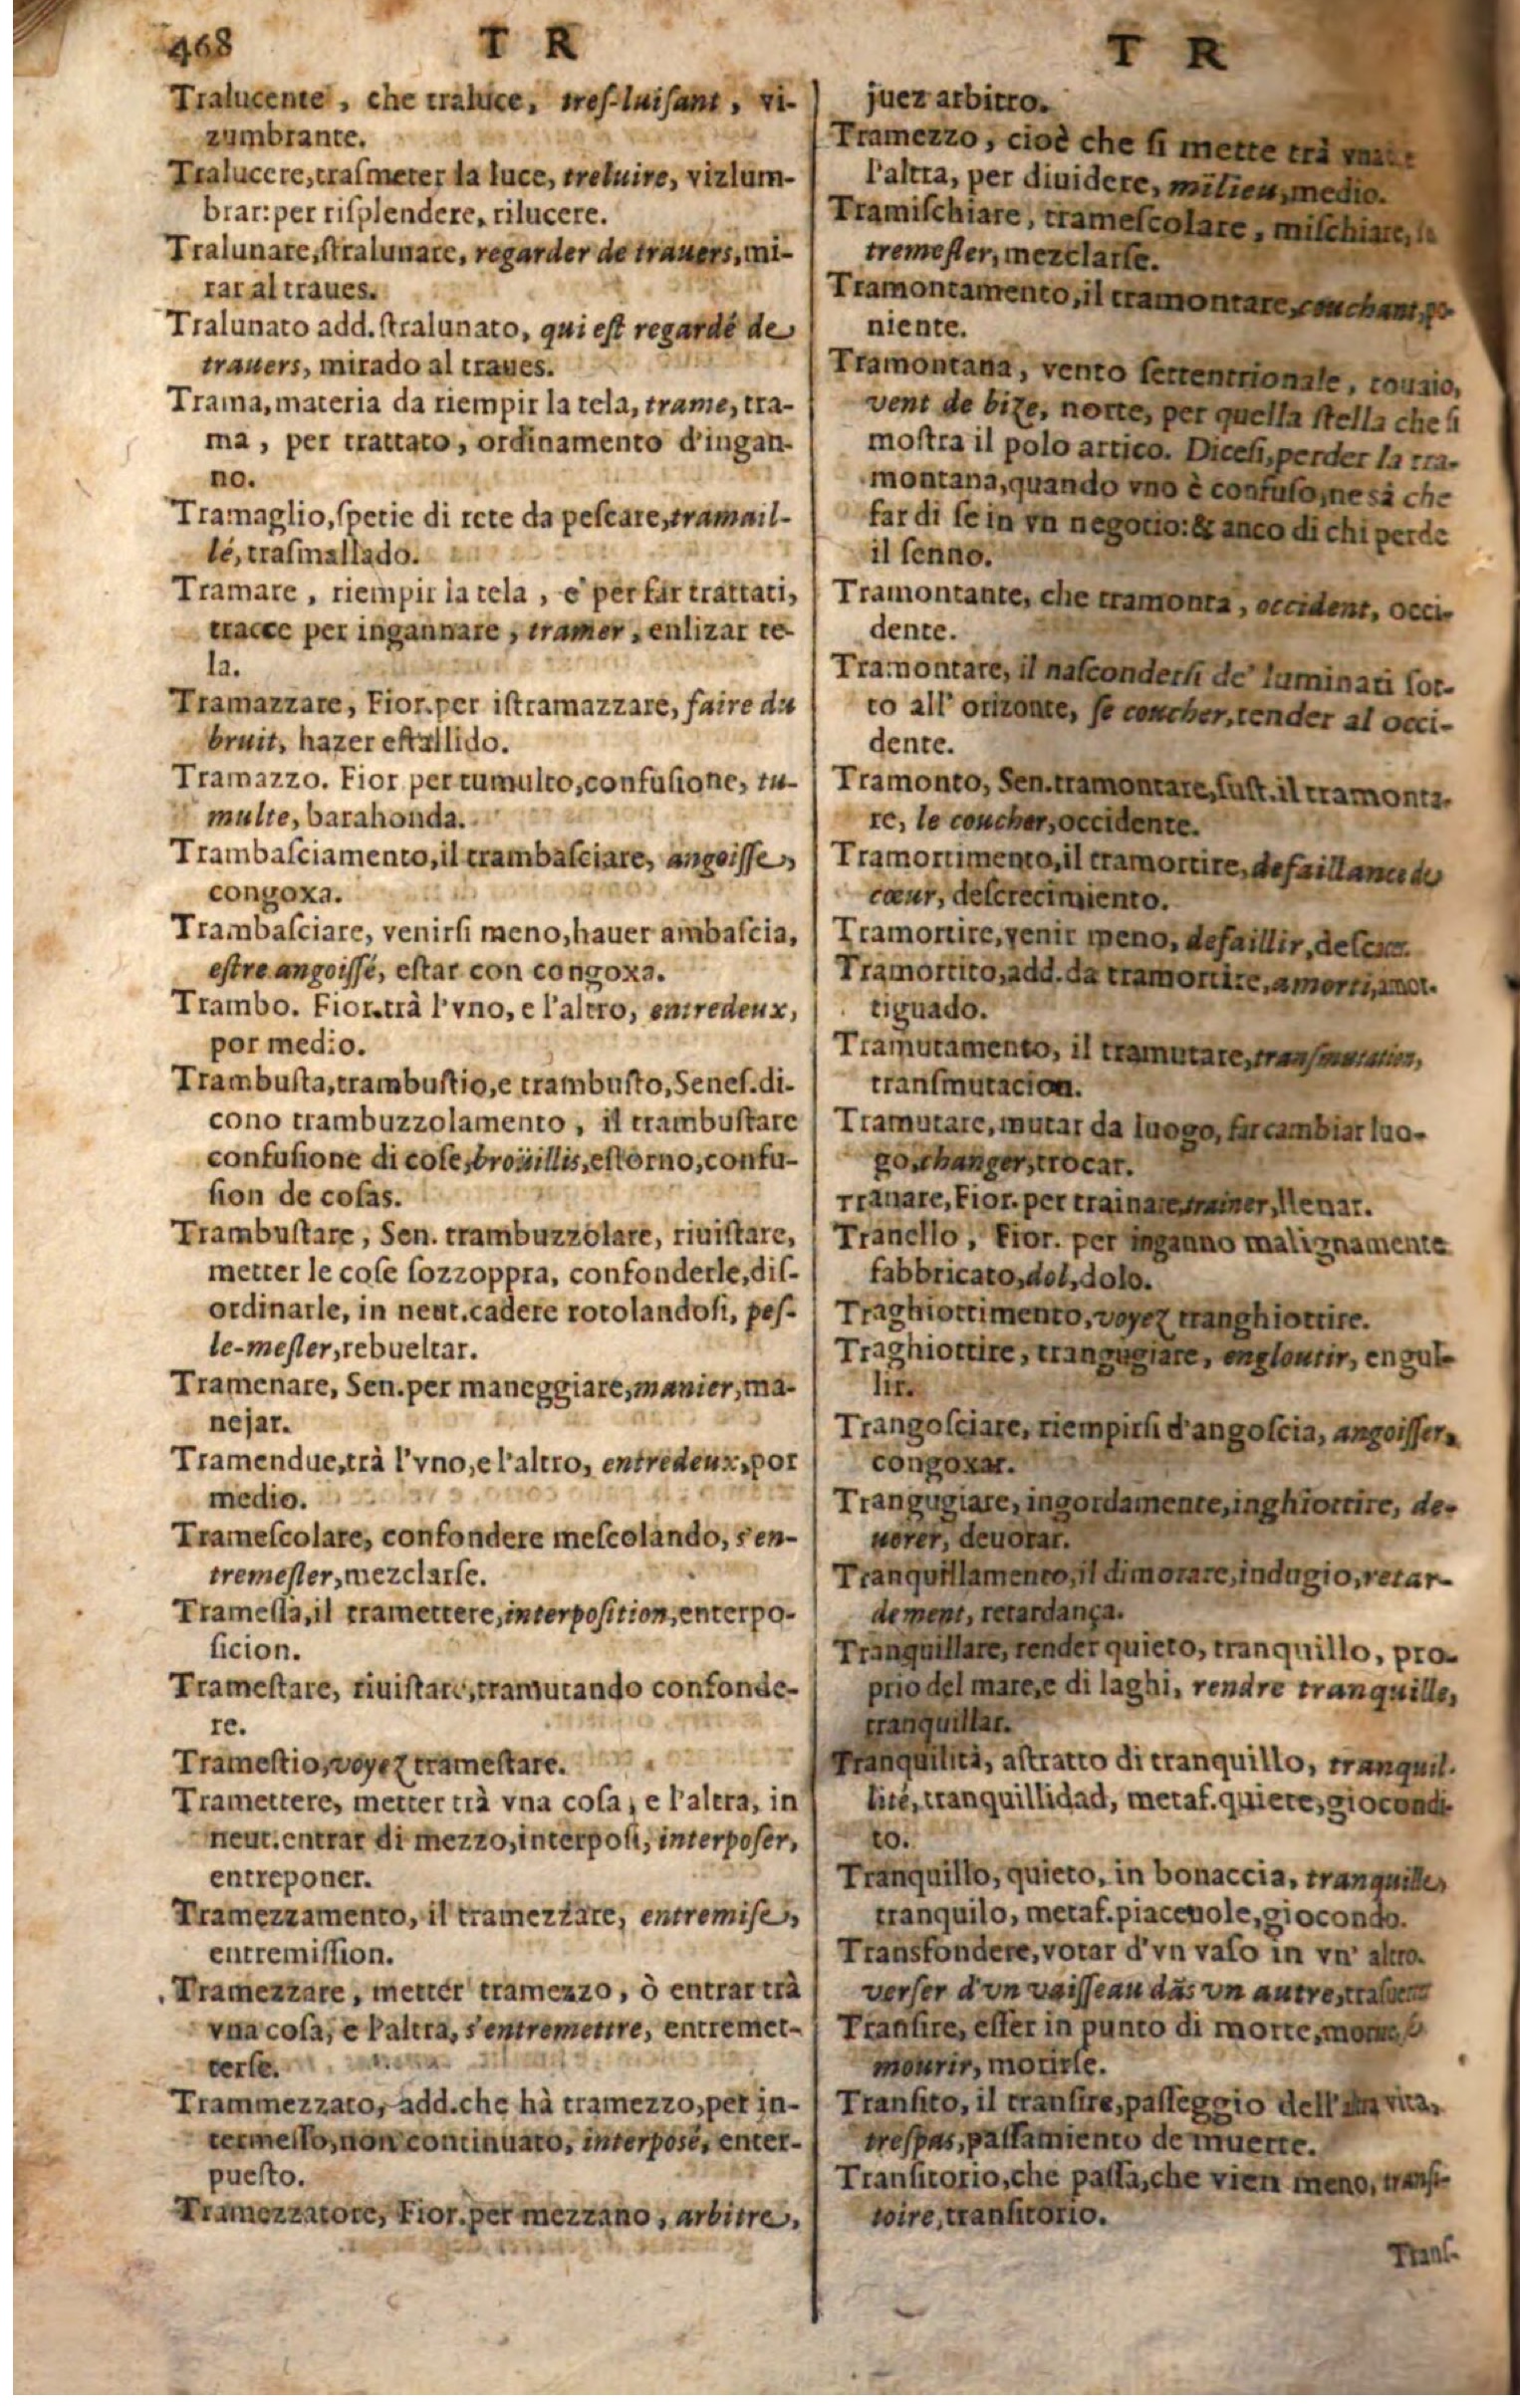 468
T R
Tralucente, che traluce, treſ-luiſant, vi-
zumbrante.
Tralucere, traſmeter la luce, treluire, vizlum-
brar: per riſplendere, rilucere.
Tralunare, ſtralunare, regarder de trauers, mi-
rar al traues.
Tralunato add. ſtralunato, qui eſt regardé de
trauers, mirado al traues.
Trama, materia da riempir la tela, trame, tra-
ma, per trattato, ordinamento d'ingan-
no.
Tramaglio, ſpetie di rete da peſcare, tramail-
lé, traſmallado.
Tramare, riempir la tela, e per far trattati,
tracce per ingannare, tramer, enlizar te-
la.
Tramazzare, Fior. per iſtramazzare, faire du
bruit, hazer eſtallido.
Tramazzo. Fior per tumulto, confuſione, tu-
multe, barahonda.
Trambaſciamento, il trambaſciare, angoiſſe,
congoxa.
Trambaſciare, venirſi meno, hauer ambaſcia,
eſtre angoiſſé, eſtar con congoxa.
Trambo. Fior. trà l'vno, e l'altro, entredeux,
por medio.
Trambuſta, trambuſtio, e trambuſto, Seneſ. di-
cono trambuzzolamento, il trambuſtare
confuſione di coſe, broüillis, eſtorno, confu-
ſion de coſas.
Trambuſtare, Sen. trambuzzolare, riuiſtare,
metter le coſe ſozzoppra, confonderle, diſ-
ordinarle, in neut. cadere rotolandoſi, peſ-
le-meſler, rebueltar.
Tramenare, Sen. per maneggiare, manier, ma-
nejar.
Tramendue, trà l'vno, e l'altro, entredeux, por
medio.
Trameſcolare, confondere meſcolando, s'en-
tremeſler, mezclarſe.
Trameſſa, il tramettere, interpoſition, enterpo-
ſicion.
Trameſtare, riuiſtare, tramutando confonde-
re.
Trameſtio, voyez trameſtare.
Tramettere, metter trà vna coſa, e l'altra, in
neut. entrar di mezzo, interpoſi, interpoſer,
entreponer.
Tramezzamento, il tramezzare, entremiſe,
entremiſſion.
Tramezzare, metter tramezzo, ò entrar trà
vna coſa, e l'altra, s'entremettre, entremet-
terſe.
Trammezzato, add. che hà tramezzo, per in-
termeſſo, non continuato, interposé, enter-
pueſto.
Tramezzatore, Fior. per mezzano, arbitre,
T R
juez arbitro.
Tramezzo, cioè che ſi mette trà vna
l'altra, per diuidere, milieu, medio.
Tramiſchiare, trameſcolare, miſchiare,
tremeſler, mezclarſe.
Tramontamento, il tramontare, couchant, po-
niente.
Tramontana, vento ſettentrionale, rouaio,
vent de bize, norte, per quella ſtella che ſi
moſtra il polo artico. Diceſi, perder la tra-
montana, quando vno è confuſo, ne sà che
far di ſe in vn negotio: & anco di chi perde
il ſenno.
Tramontante, che tramonta, occident, occi-
dente.
Tramontare, il naſconderſi de' luminari ſot-
to all' orizonte, ſe coucher, tender al occi-
dente.
Tramonto, Sen. tramontare, ſuſt. il tramonta-
re, le coucher, occidente.
Tramortimento, il tramortire, defaillance de
cœur, deſcrecimiento.
Tramortire, venir meno, defaillir,
Tramortito, add. da tramortire, amorti, amor-
tiguado.
Tramutamento, il tramutare, tranſmutation,
tranſmutacion.
Tramutare, mutar da luogo, far cambiar luo-
go, changer, trocar.
Tranare, Fior. per trainare, trainer, llenar.
Tranello, Fior. per inganno malignamente
fabbricato, dol, dolo.
Traghiottimento, voyez tranghiottire.
Traghiottire, trangugiare, engloutir, engul-
lir.
Trangoſciare, riempirſi d'angoſcia, angoiſſer,
congoxar.
Trangugiare, ingordamente, inghiottire, de-
uorer, deuorar.
Tranquillamento, il dimorare, indugio, retar-
dement, retardança.
Tranquillare, render quieto, tranquillo, pro-
prio del mare, e di laghi, rendre tranquille,
tranquillar.
Tranquilità, aſtratto di tranquillo, tranquil-
lité, tranquillidad, metaf. quiete, giocondi-
to.
Tranquillo, quieto, in bonaccia, tranquille,
tranquilo, metaf. piaceuole, giocondo.
Transfondere, votar d'vn vaſo in vn' altro.
verſer d'vn vaiſſeau dãs vn autre,
Tranſire, eſſer in punto di morte,
mourir, morirſe.
Tranſito, il tranſire, paſſeggio dell' vita,
treſpas, paſſamiento de muerte.
Tranſitorio, che paſſa, che vien meno, tranſi-
toire, tranſitorio.
Tranſ-